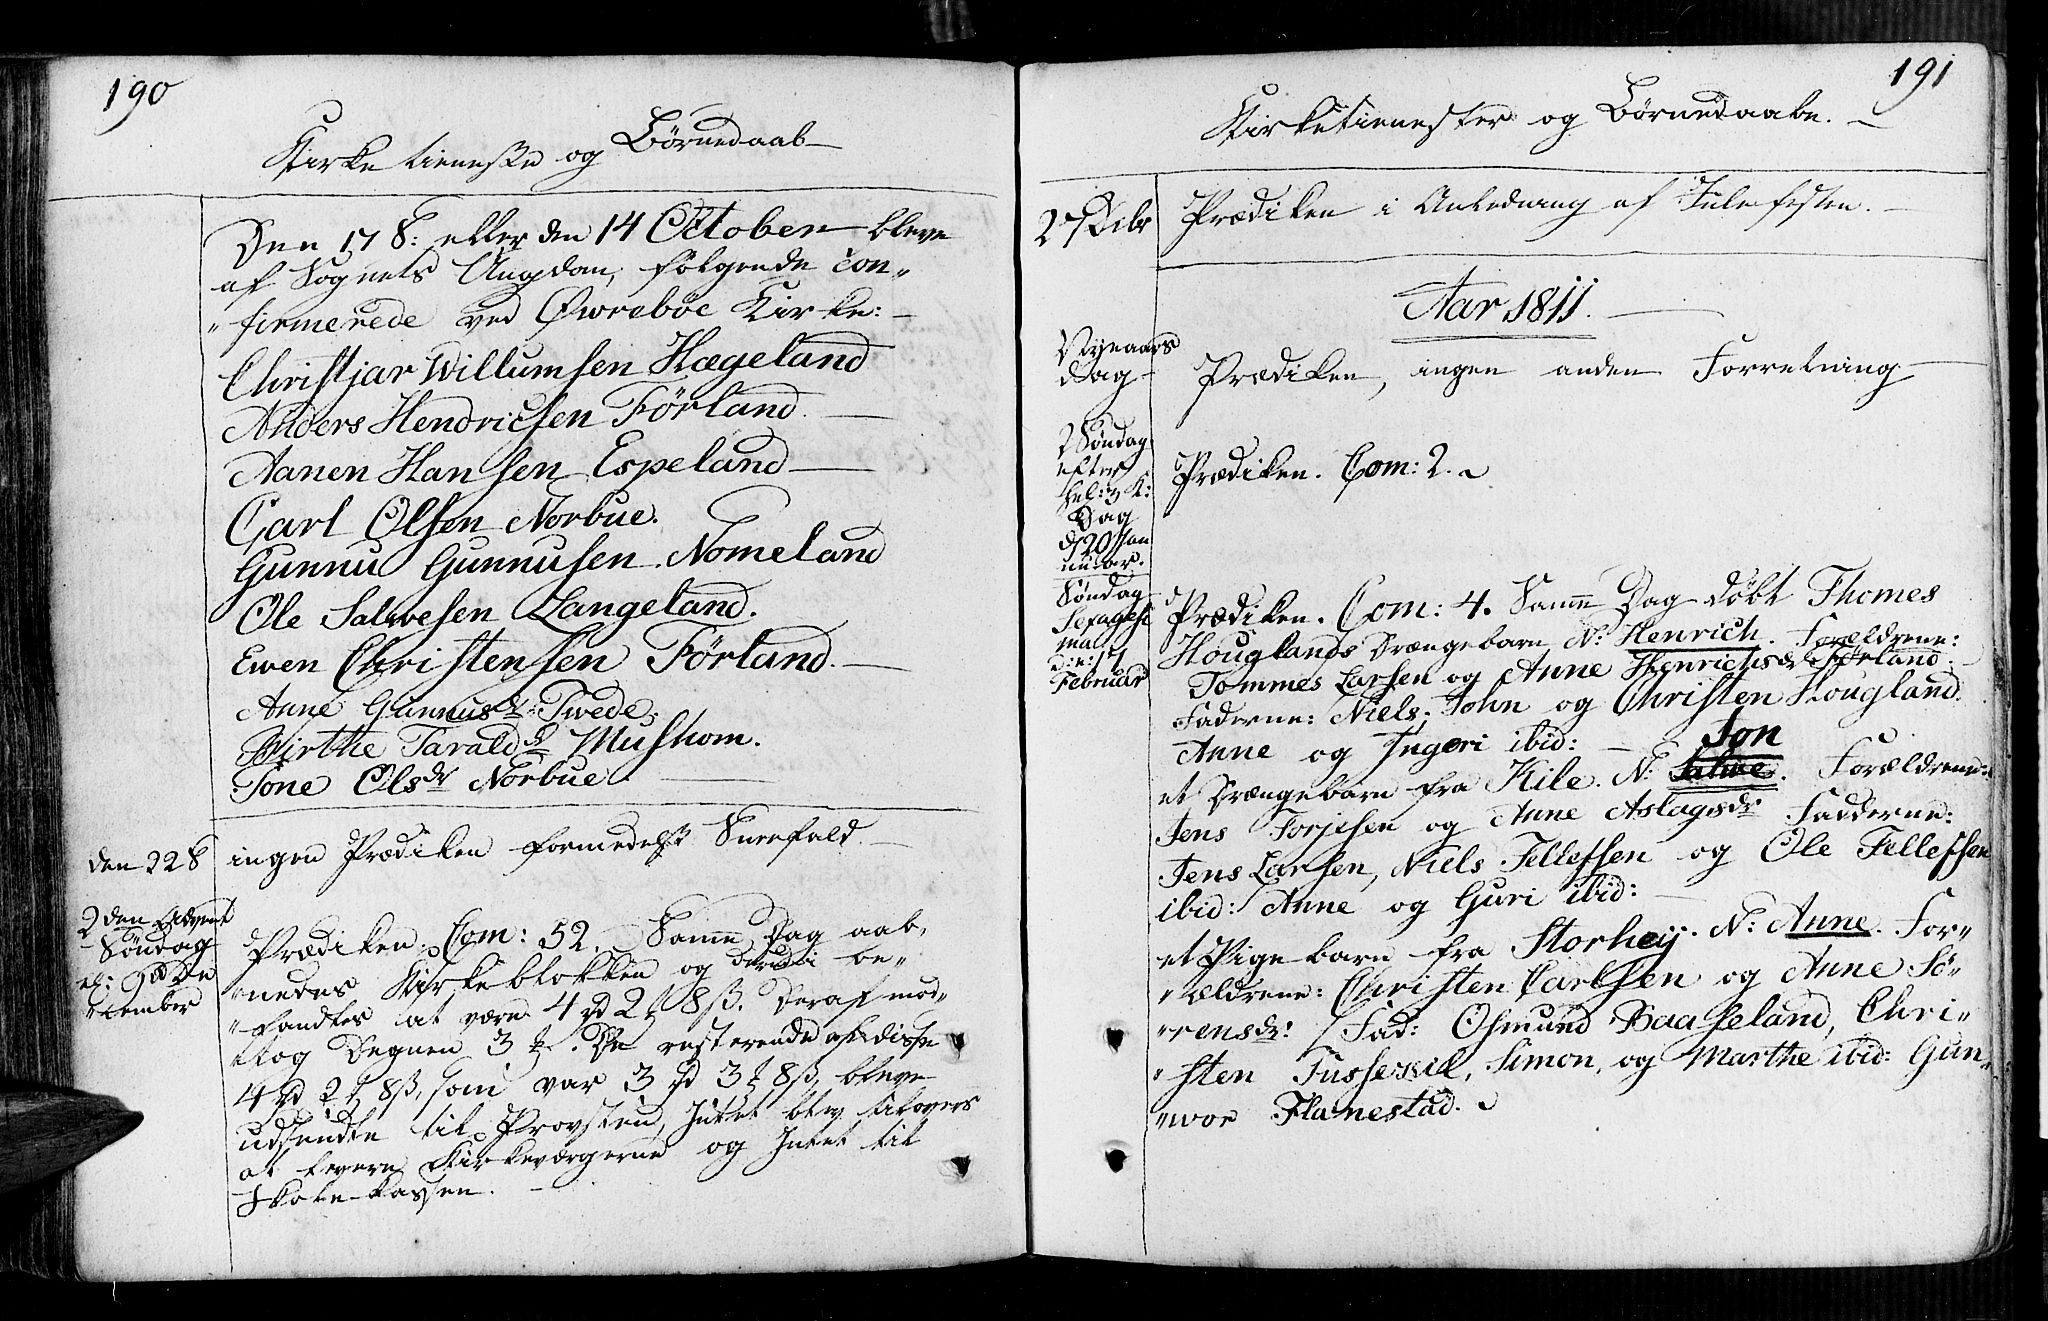 190
Kirketieneste og Børnedaab
Den 17 S: eller den 14 October bleve
af Sognets Ungdom, følgende Con„
„firmerede ved Øwrebøe Kirke:
Christjar Willumsen Hægeland
Anders Hendricsen Förland.
Aanen Hansen Espeland
Carl Olsen Norbue.
Gunnu Gunnusen Nomeland
Ole Salwesen Langeland.
Ewen Christensen Førland.
Anne Gunnusdr Twede,
Birthe Taraldsd Mushom.
Tone Olsdr Norbue.
den 22 S ingen Prædiken formedelst Sneefald.
2den Advent
Söndag
el: 9de De
„cember
Prædiken. Com: 52. Samme Dag aab„
„nedes Kirkeblokken og derudi be„
„fandtes at være 4 rd 2 ℔ 8 ß. Deraf mod„
„tog Degnen 3 ℔. De resterende af disse
4 rd 2 ℔ 8 ß, som var 3 rd 3 ℔ 8 ß, bleve
udsendte til Provsten, Intet blev tilovers
at levere Kirkeværgerne og Intet til
Skole-kassen.
191
Kirketienester og Börnedaabe.
27 Decbr Prædiken i Anledning af Julefesten.
Aar 1811.
Nyeaars
dag Prædiken, ingen anden Forretning
2 Søndag
efter
hel: 3 K:
Dag
d 20 Jan
nuar.
Prædiken. Com: 2.
Søndag
Sexagesi
ma
d: 17
Februar
Prædiken. Com: 4. Samme Dag døbt Thomes
Houglands Drængebarn N: Henrich. Forældrene:
Tommes Larsen og Anne Henrichsdr Førland.
Faderne: Niels, John og Christen Hougland.
Anne og Ingeri ibid: Jon
et Drængebarn fra Kile. N: Salwe. Forældrene:
Jens Torjesen og Anne Aslagsdr Fadderne:
Jens Larsen, Niels Tellefsen og Ole Tellefsen
ibid: Anne og Guri ibid:
et Pige barn fra Storheij. N: Anne. For„
„ældrene: Christen Carlsen og Anne Sö„
„rensdr: Fad: Osmund Baaseland, Chri„
„sten Fussewiil, Simon, og Marthe ibid: Gun„
„wor Flanestad.